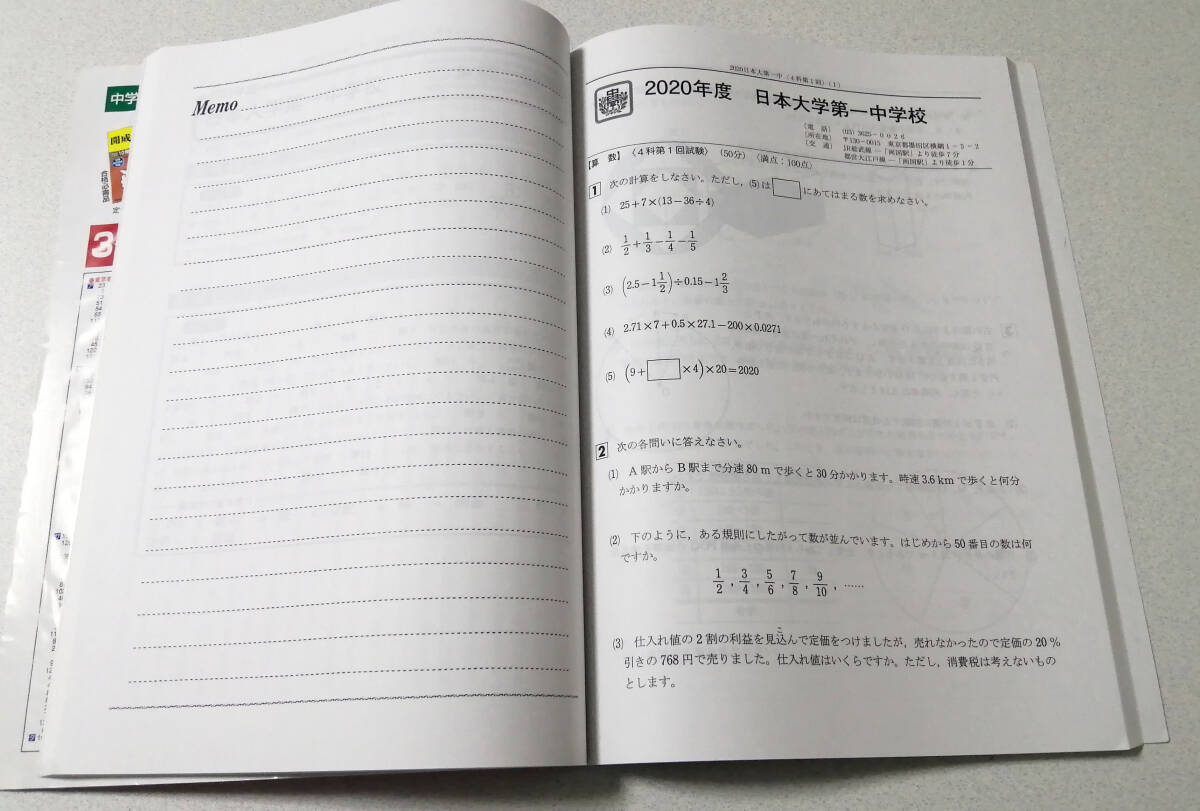 中学
開成
合格必需品
定
3
Memo
2020日本大第一中(4科第1回)(1)
2020年度 日本大学第一中学校
〔電 話〕 (03) 3625-0026
〔所在地〕 〒130-0015 東京都墨田区横網1-5-2
〔交 通〕 JR総武線―「両国駅」より徒歩7分
都営大江戸線―「両国駅」より徒歩1分
【算 数】〈4科第1回試験〉(50分)〈満点:100点〉
1 次の計算をしなさい。ただし,(5)は□にあてはまる数を求めなさい。
(1) 25+7×(13-36÷4)
(2) 1/2+1/3-1/4-1/5
(3) (2.5-1 1/2)÷0.15-1 2/3
(4) 2.71×7+0.5×27.1-200×0.0271
(5) (9+□×4)×20=2020
2 次の各問いに答えなさい。
(1) A駅からB駅まで分速80mで歩くと30分かかります。時速3.6kmで歩くと何分
かかりますか。
(2) 下のように,ある規則にしたがって数が並んでいます。はじめから50番目の数は何
ですか。
1/2, 3/4, 5/6, 7/8, 9/10, ……
(3) 仕入れ値の2割の利益を見込んで定価をつけましたが,売れなかったので定価の20%
引きの768円で売りました。仕入れ値はいくらですか。ただし,消費税は考えないもの
とします。